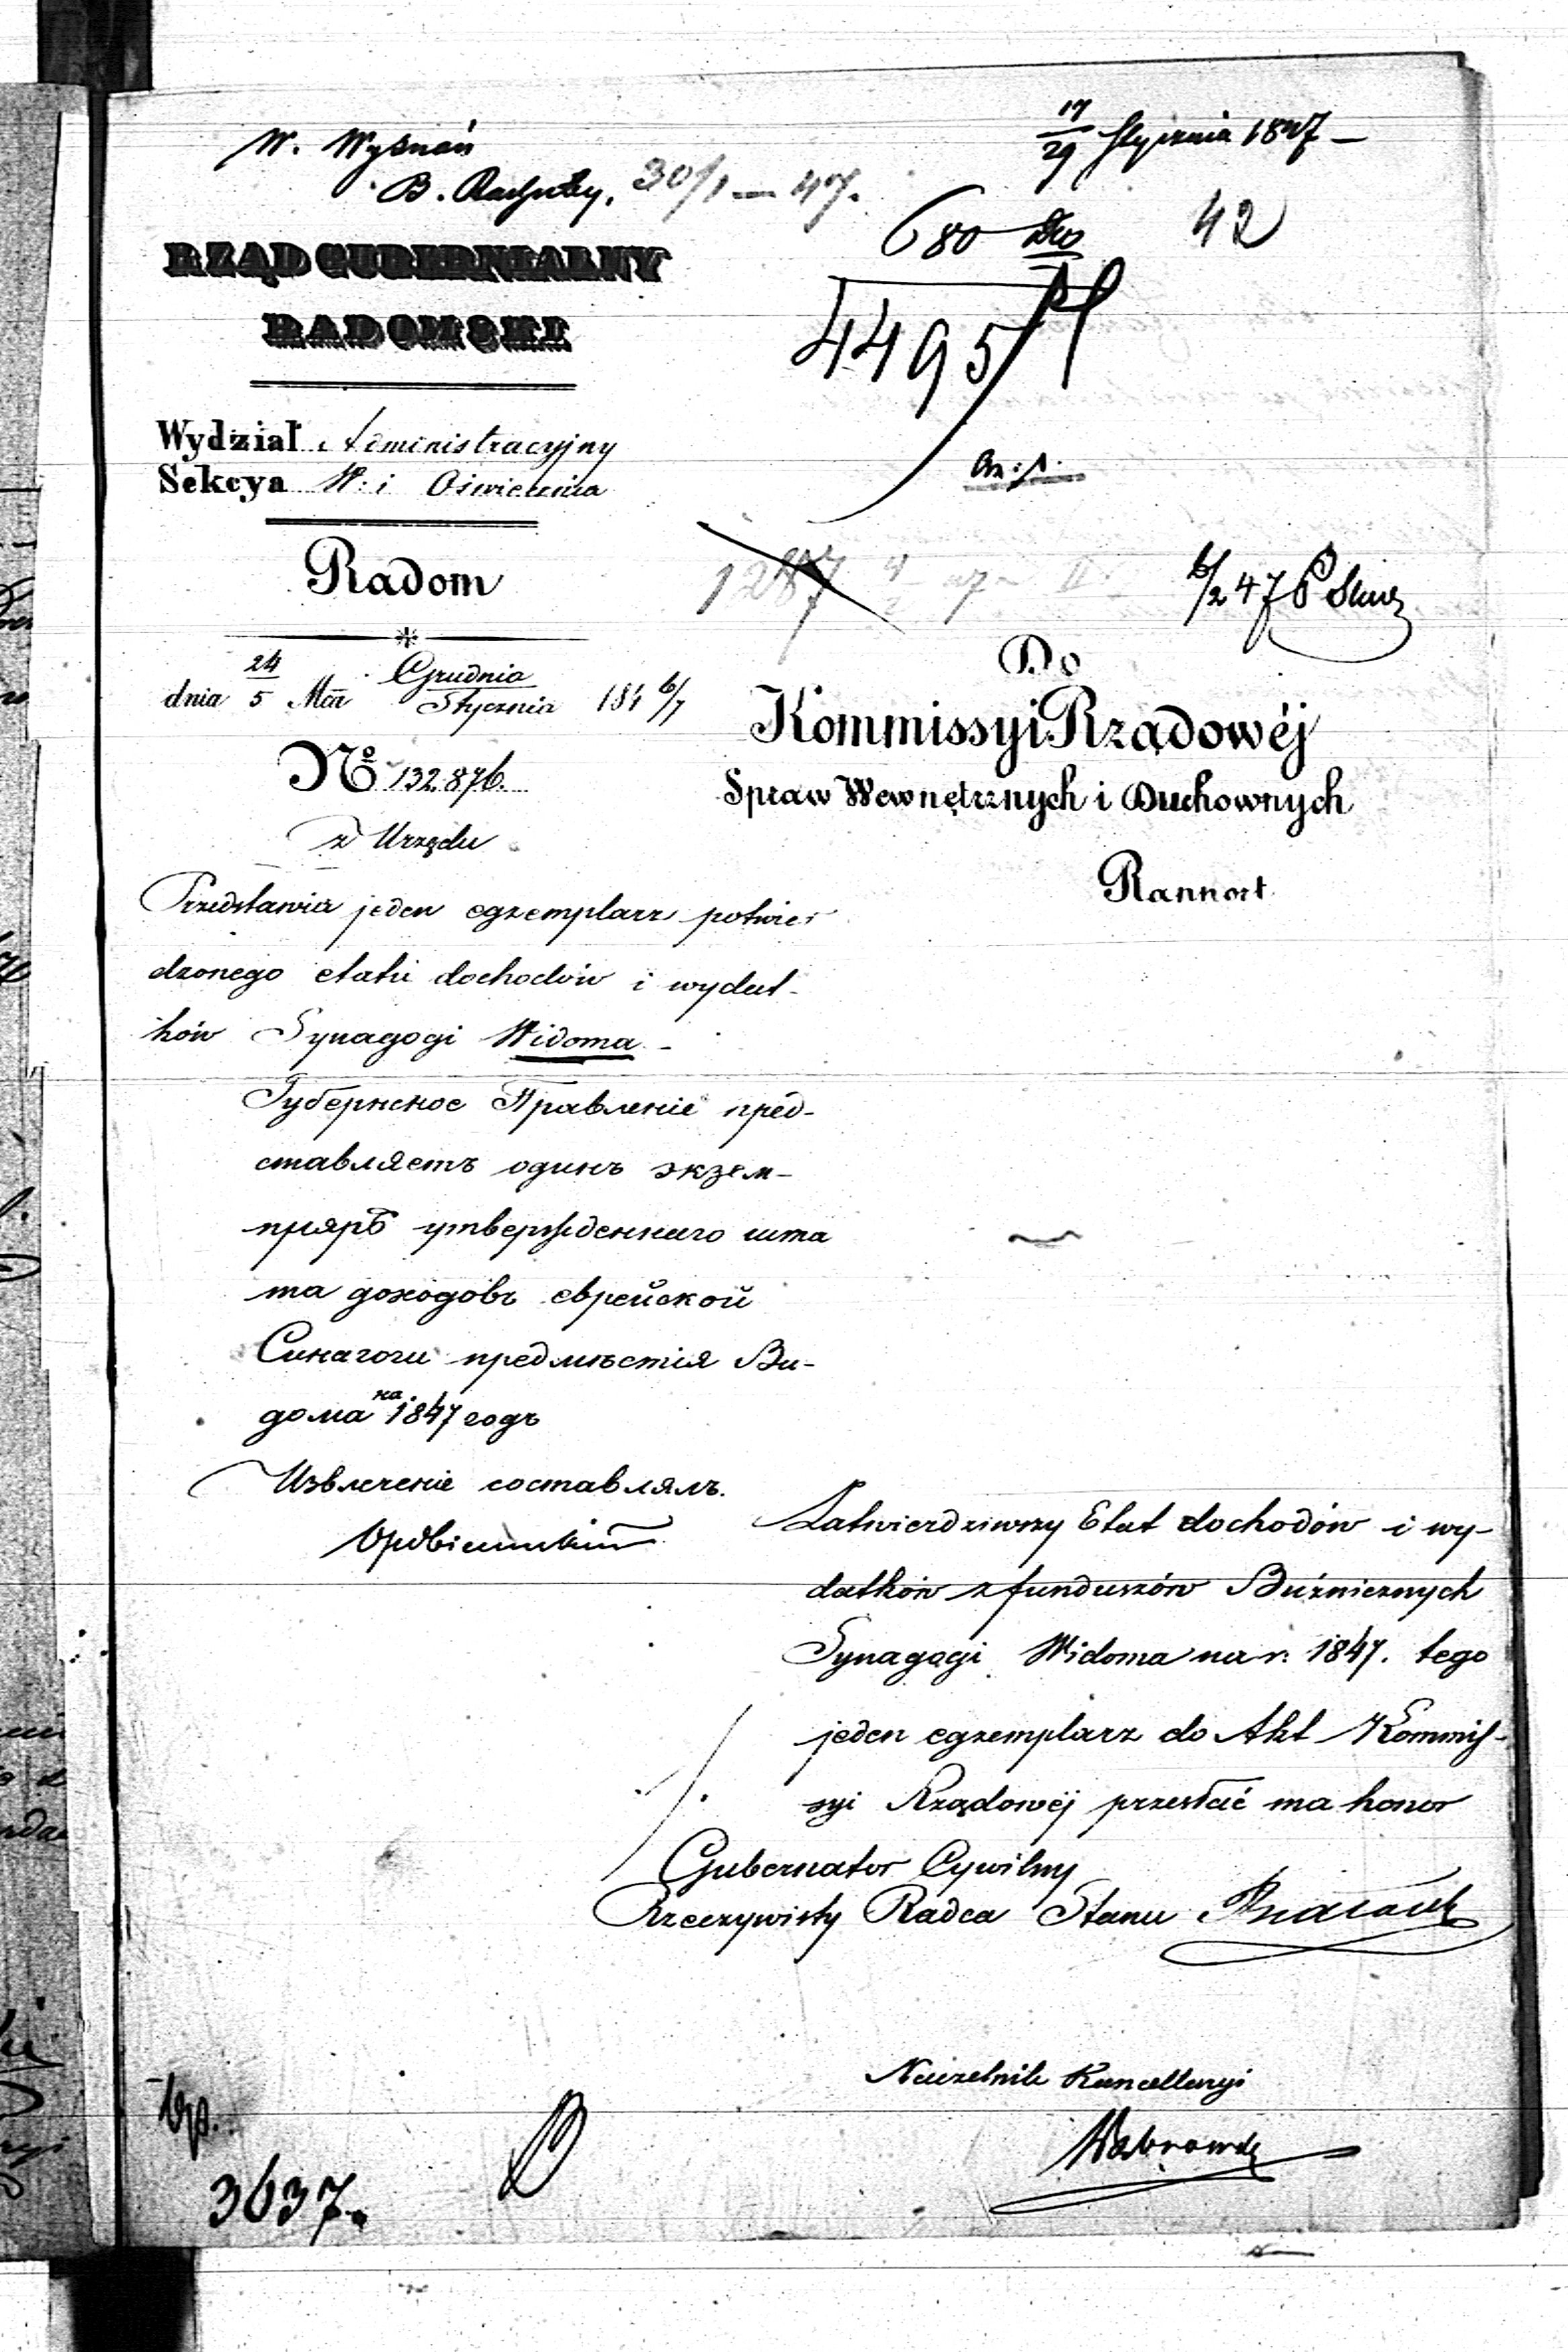 W. Wyznań
17/29 Stycznia 1847 —
30/1 — 47.
680
42
RZĄD GUBERNIALNY
RADOMSKI
4495
Wydział Administracyjny
Sekcya W. i Oświecenia
Radom
1287
6/2 47
dnia 24/5 Mca Grudnia/Stycznia 184 6/7
Nº 132.876.
z Urzędu
Do
Kommissyi Rządowéj
Spraw Wewnętrznych i Duchownych
Rapport
Przedstawia jeden egzemplarz potwier
dzonego etatu dochodów i wydat-
ków Synagogi Widoma. -
Губернское Правленіе пред-
ставляетъ одинъ экзем-
пляръ утвержденнаго шта
та доходовъ еврейской
Синагоги предмѣстія Ви-
дома на 1847 годъ
Извлеченіе составлялъ.
Zatwierdziwszy Etat dochodów i wy-
datków z funduszów Bużnicznych
Synagogi Widoma na r. 1847. tego
jeden egzemplarz do Akt Kommis-
syi Rządowéj przesłać ma honor
Gubernator Cywilny
Rzeczywisty Radca Stanu
Naczelnik Kancellaryi
3637.